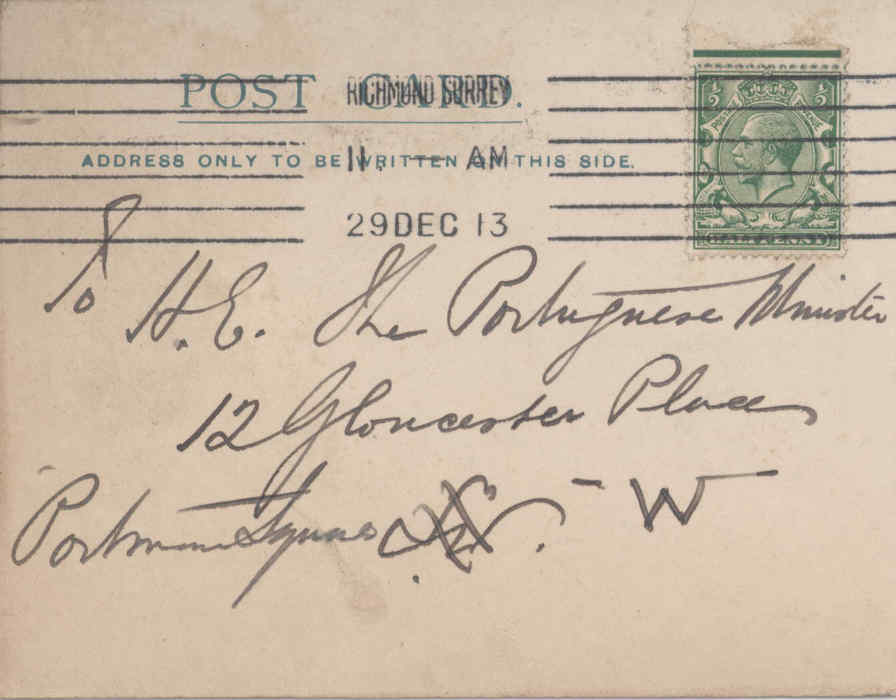 POST CARD.
RICHMOND SURREY
ADDRESS ONLY TO BE WRITTEN ON THIS SIDE.
11. — AM
29 DEC 13
½ ½
POSTAGE
HALFPENNY
To H.E. The Portuguese Minister
12 Gloucester Place
Portman Square W